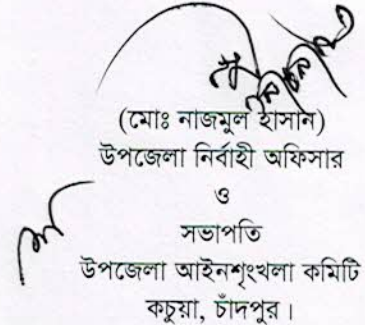 (মোঃ নাজমুল হাসান)
উপজেলা নির্বাহী অফিসার
ও
সভাপতি
উপজেলা আইনশৃংখলা কমিটি
কচুয়া, চাঁদপুর।